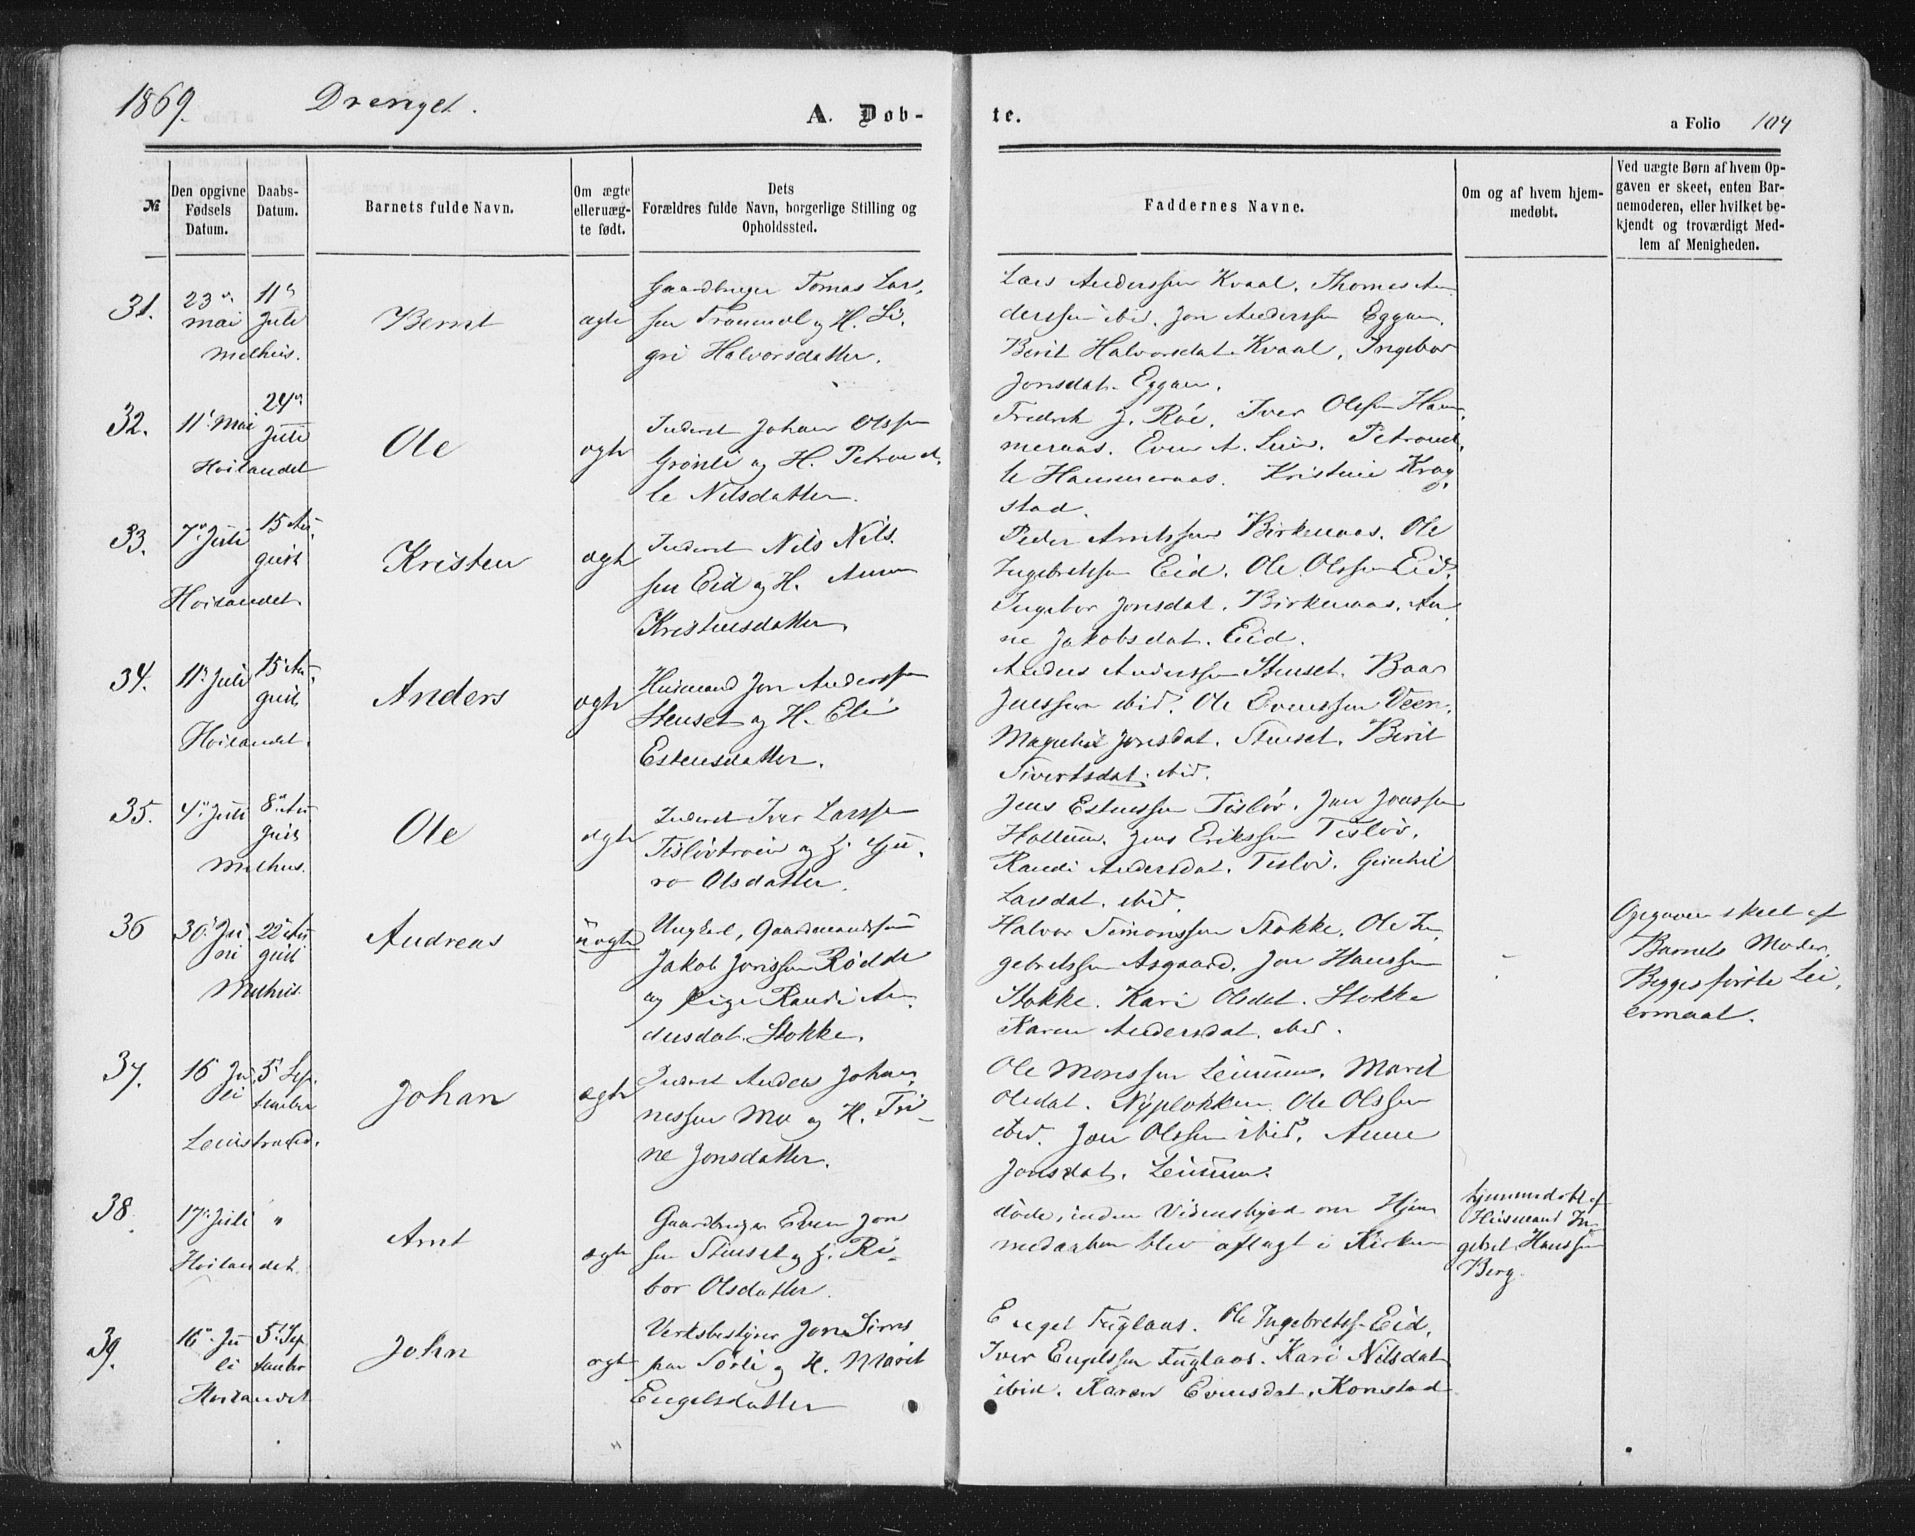 1869. Drenget.
A. Dob-
te.
a Folio 104
№
Den opgivne
Fødsels
Datum.
Daabs-
Datum.
Barnets fulde Navn.
Om ægte
elleruæg-
te født.
Dets
Forældres fulde Navn, borgerlige Stilling og
Opholdssted.
Faddernes Navne.
Om og af hvem hjem-
medøbt.
Ved uægte Børn af hvem Op-
gaven er skeet, enten Bar-
nemoderen, eller hvilket be-
kjendt og troværdigt Med-
lem af Menigheden.
31.
23de
mai
11te
Juli
Melhus.
Bernt
ægte
Gaardbruger Tomas Lars.
sen Trammel og H. Si-
gri Halvorsdatter.
Lars Anderssen Kvaal. Thomas An
derssen ibid. Jon Anderssen Eggan.
Berit Halvorsdat. Kvaal. Ingebor
Jonsdat. Eggan.
32.
11te Mai
24de
Juli
Hoilandet
Ole
ægte
Inderst Johan Olssen
Grønli og H. Petronel.
le Nilsdatter.
Fredrik J. Röe. Iver Olssen Ham.
meraas. Even A. Lein. Petronel.
le Hammeraas. Kristine Krog
stad.
33.
7de Juli
15 Au-
gust
Hoilandet.
Kristen
ægte
Inderst Nils Nils.
sen Eid og H. Anne
Kristensdatter.
Peder Arntssen Birkenaas. Ole
Ingebretssen Eid. Ole Olssen Eid.
Ingebor Jonsdat. Birkenaas. An
ne Jakobsdat. Eid.
34.
11te Juli
15 Au-
gust
Hoilandet.
Anders
ægte
Husmand Jon Anderssen
Stenset og H. Eli
Estensdatter.
Anders Anderssen Stenset. Baar
Jenssen ibid. Ole Evenssen Veen.
Magnhil Jonsdat. Stenset. Berit
Sivertsdat. ibid.
35.
4de Juli
8de Au-
gust
Melhus.
Ole
ægte
Inderst Iver Larssen
Tisløvtrøen og H. Gu.
ro Olsdatter.
Jens Estenssen Tisløv. Jon Jonssen
Hollum. Jens Erikssen Tisløv.
Randi Andersdat. Tisløv. Gunhil
Larsdat. ibid.
36
30te Ju
ni
22de Au
gust
Melhus.
Andreas
uægte
Ungkarl, Gaardmandssøn
Jakob Jonssen Rødde
og Pige Randi An.
dersdat. Stokke.
Halvor Simonssen Stokke. Ole In.
gebretssen Asgaard. Jon Hanssen
Stokke. Kari Olsdat. Stokke
Karen Andersdat. ibid.
Opgaven skeet af
Barnets Moder.
Begges første Lei.
ermaal.
37.
16 Ju
li
5te Sep.
tember
Leinstrand.
Johan
ægte
Inderst Anders Johan.
nessen Mo og H. Tri-
ne Jonsdatter.
Ole Monssen Leinum. Marit
Olsdat. Nypløkken. Ole Olssen
ibid. Jon Olssen ibid. Anne
Jonsdat. Leinum.
38
17de Juli
"
Hoilandet.
Arnt
ægte
Gaardbruger Even Jon
sen Stenset og H. Ri-
bor Olsdatter.
døde, inden Vidnesbyrd om Hjem
medaaben blev aflagt i Kirken
hjemmedøbt af
Husmand In-
gebret Hanssen
Berg.
39.
16de Ju
li
5te Sep
tember
Hoilandet
John
ægte
Verksbestyrer Jon Simes
paa Sørli og H. Marit
Engelsdatter
Engel Fuglaas. Ole Ingebretss. Eid.
Iver Engelssen Fuglaas. Kari Nilsdat
ibid. Karen Evensdat. Konstad